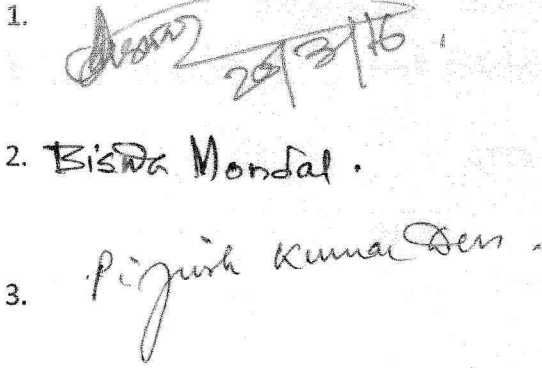 1.
28/3/16
2. Biswa Mondal.
3. Pijush Kumar Den.